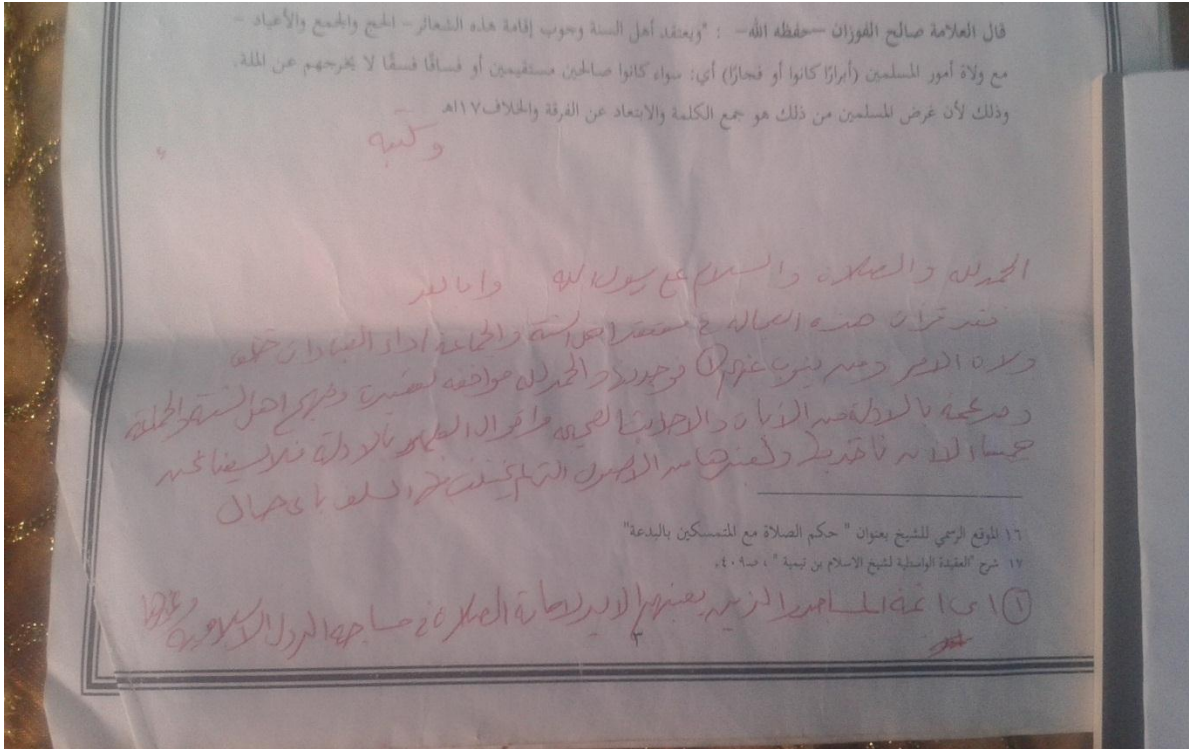 قال العلامة صالح الفوزان –حفظه الله– : "ويعتقد أهل السنة وجوب إقامة هذه الشعائر – الحج والجمع والأعياد –
مع ولاة أمور المسلمين (أبرارًا كانوا أو فجارًا) أي: سواء كانوا صالحين مستقيمين أو فساقًا فسقًا لا يخرجهم عن الملة.
وذلك لأن غرض المسلمين من ذلك هو جمع الكلمة والابتعاد عن الفرقة والخلاف١٧اهـ
وكتبه
الحمد لله والصلاة والسلام على رسول الله وأما بعد
فقد قرأت هذه الرسالة في معتقد اهل السنة والجماعة اداء العبادات خلف
ولاة الامر ومن ينوب عنهم (١) فوجدتها والحمد لله موافقة لعقيدة ومنهج اهل السنة والجماعة
ومدعمة بالادلة من الآيات والاحاديث الصحيحة واقوال العلماء بالادلة فلا يسعنا نحن
جميعا الا ان نأخذ بها ولغيرها من الاصول التي لم يختلف فيها السلف باي حال
١٦ الموقع الرسمي للشيخ بعنوان " حكم الصلاة مع المتمسكين بالبدعة"
١٧ شرح "العقيدة الواسطية لشيخ الاسلام بن تيمية " ، صـ٤٠٩.
(١) اي ائمة المساجد الذين يعينهم الامير لامامة الصلاة في مساجد الدول الاسلامية وغيرها
٣